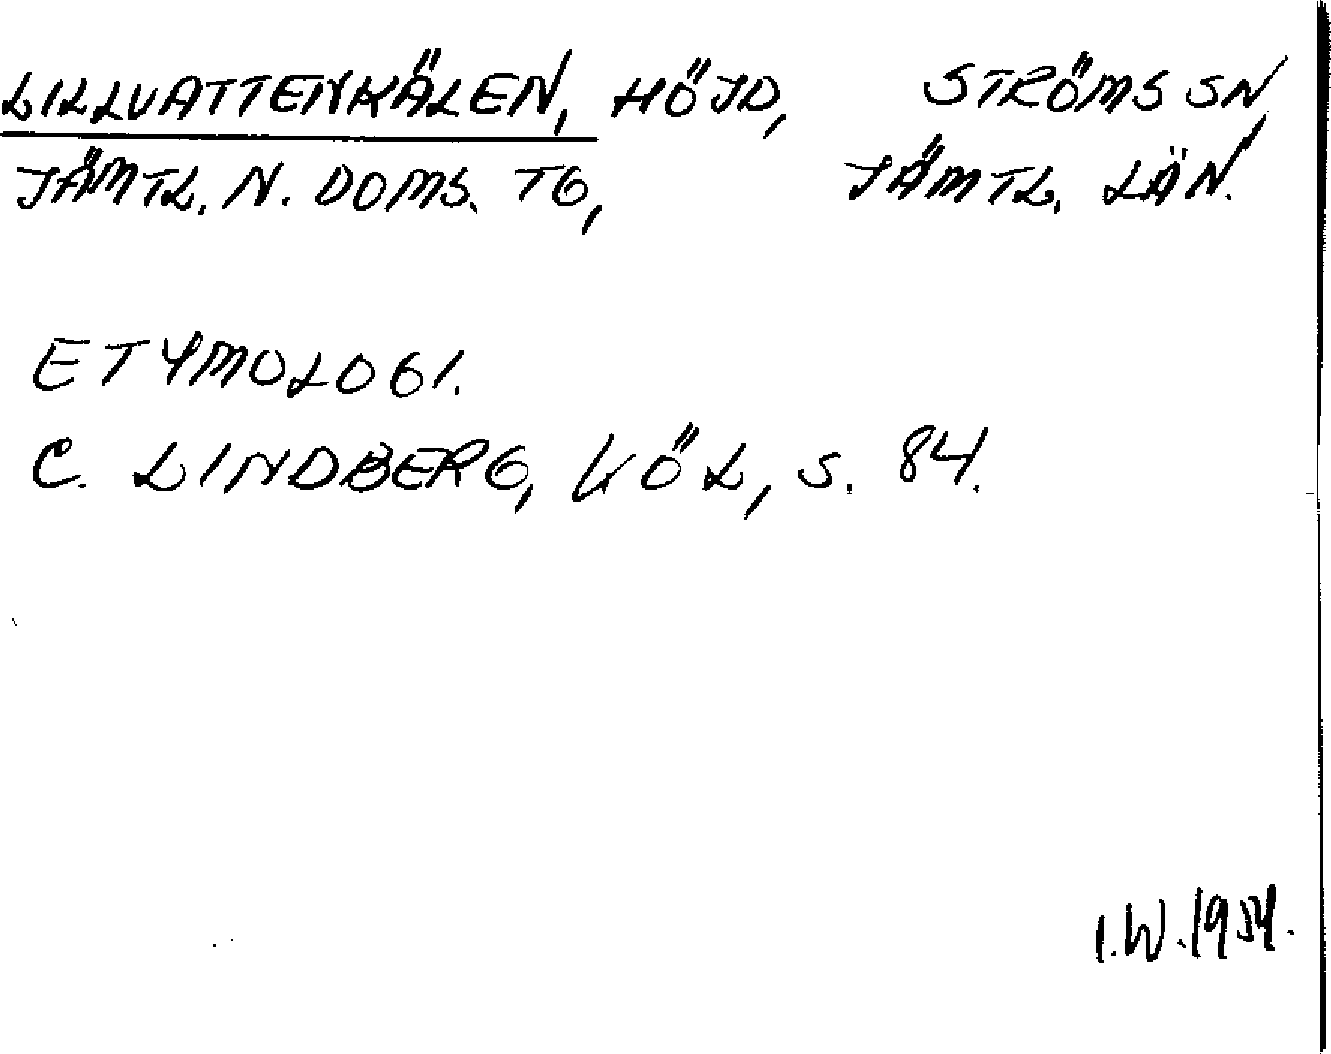 LILLVATTENKÄLEN, HÖJD, STRÖMS SN,
JÄMTL. N. DOMS. TG, JÄMTL. LÄN.
ETYMOLOGI.
C. LINDBERG, KÖL, S. 84.
I.W. 1954.